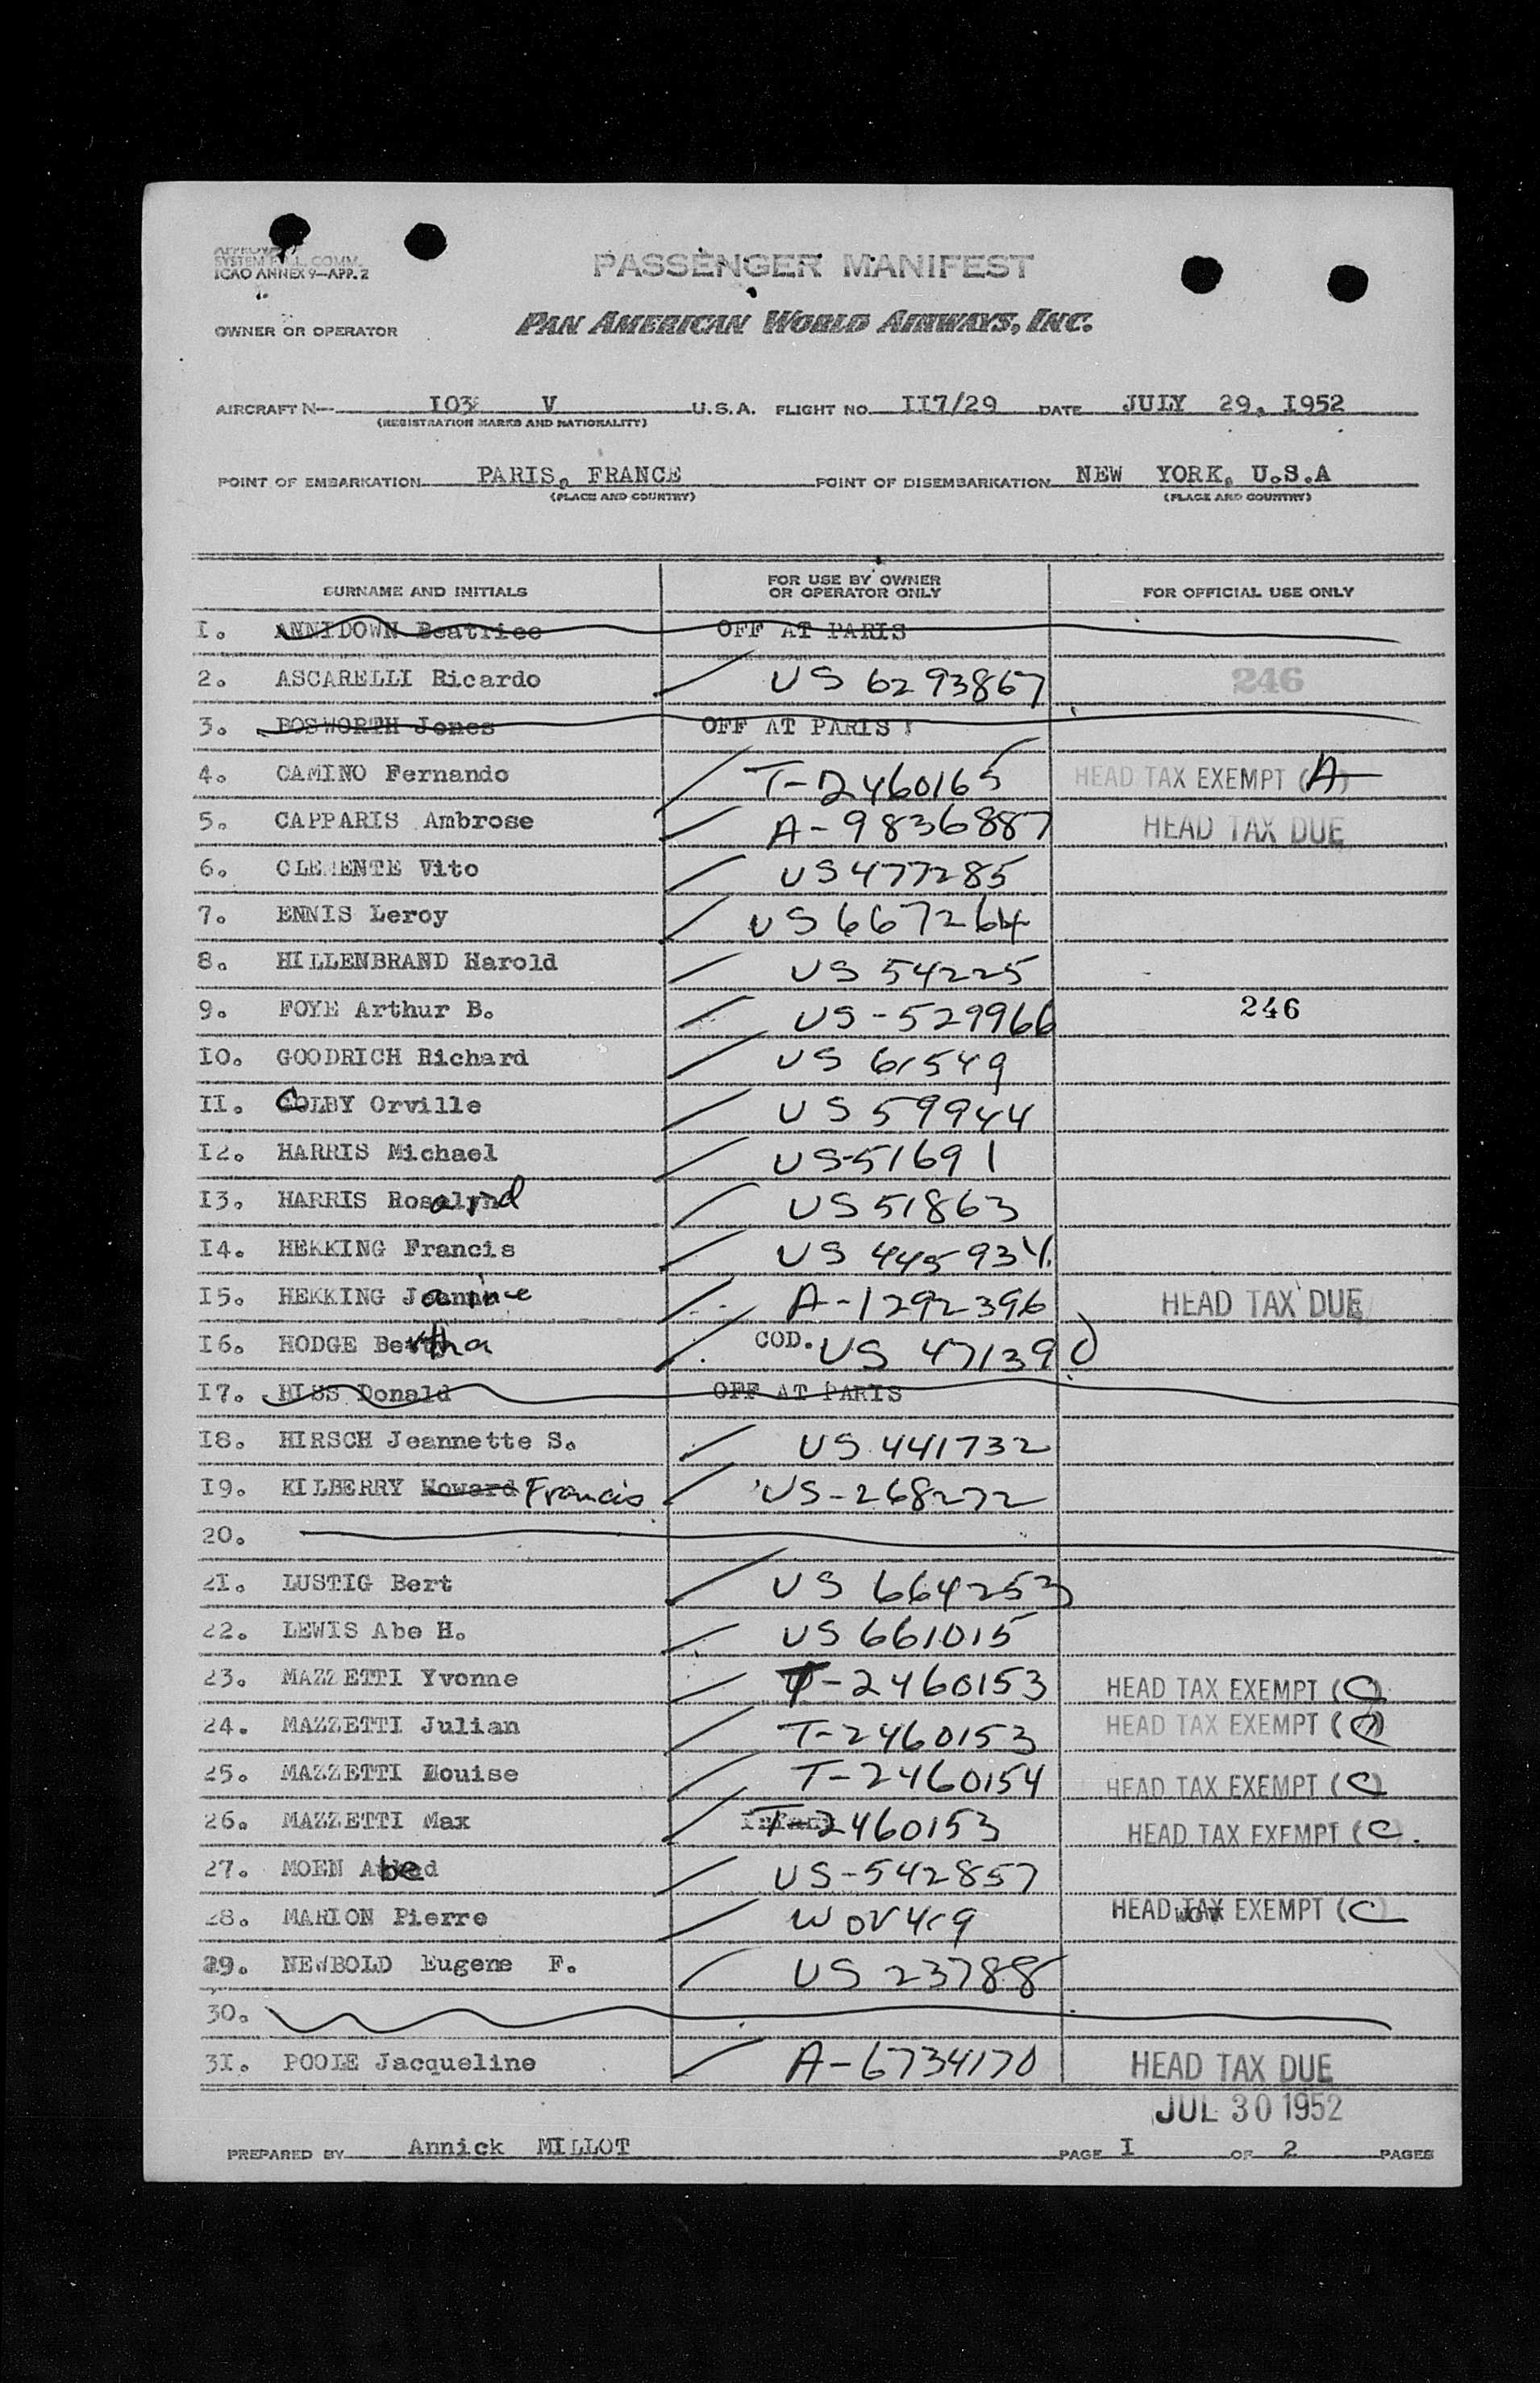 SYSTEM COMM.
ICAO ANNEX 9—APP. 2
PASSENGER MANIFEST
OWNER OR OPERATOR PAN AMERICAN WORLD AIRWAYS, INC.
AIRCRAFT N— I03 V U.S.A. FLIGHT NO. II7/29 DATE JULY 29, I952
(REGISTRATION MARKS AND NATIONALITY)
POINT OF EMBARKATION PARIS, FRANCE POINT OF DISEMBARKATION NEW YORK, U.S.A
(PLACE AND COUNTRY) (PLACE AND COUNTRY)
SURNAME AND INITIALS FOR USE BY OWNER OR OPERATOR ONLY FOR OFFICIAL USE ONLY
I. ANNIDOWN Beatrice OFF AT PARIS
2. ASCARELLI Ricardo US 6293867 246
3. BOSWORTH Jones OFF AT PARIS
4. CAMINO Fernando T-2460165 HEAD TAX EXEMPT (A)
5. CAPPARIS Ambrose A-9836887 HEAD TAX DUE
6. CLEMENTE Vito US 477285
7. ENNIS Leroy US 667264
8. HILLENBRAND Harold US 54225
9. FOYE Arthur B. US-529966 246
I0. GOODRICH Richard US 61549
II. COLBY Orville US 59944
I2. HARRIS Michael US-51691
I3. HARRIS Rosalind US 51863
I4. HEKKING Francis US 445934
I5. HEKKING Jeanine A-1292396 HEAD TAX DUE
I6. HODGE Bertha COD. US 471390
I7. HISS Donald OFF AT PARIS
I8. HIRSCH Jeannette S. US 441732
I9. KILBERRY Howard Francis US-268272
20.
2I. LUSTIG Bert US 664253
22. LEWIS Abe H. US 661015
23. MAZZETTI Yvonne T-2460153 HEAD TAX EXEMPT (C)
24. MAZZETTI Julian T-2460153 HEAD TAX EXEMPT (C)
25. MAZZETTI Louise T-2460154 HEAD TAX EXEMPT (C)
26. MAZZETTI Max T-2460153 HEAD TAX EXEMPT (C)
27. MOEN US-542857
28. MARION Pierre HEAD TAX EXEMPT (C)
29. NEWBOLD Eugene F. US 23788
30.
3I. POOLE Jacqueline A-6734170 HEAD TAX DUE
JUL 30 1952
PREPARED BY Annick MILLOT PAGE I OF 2 PAGES